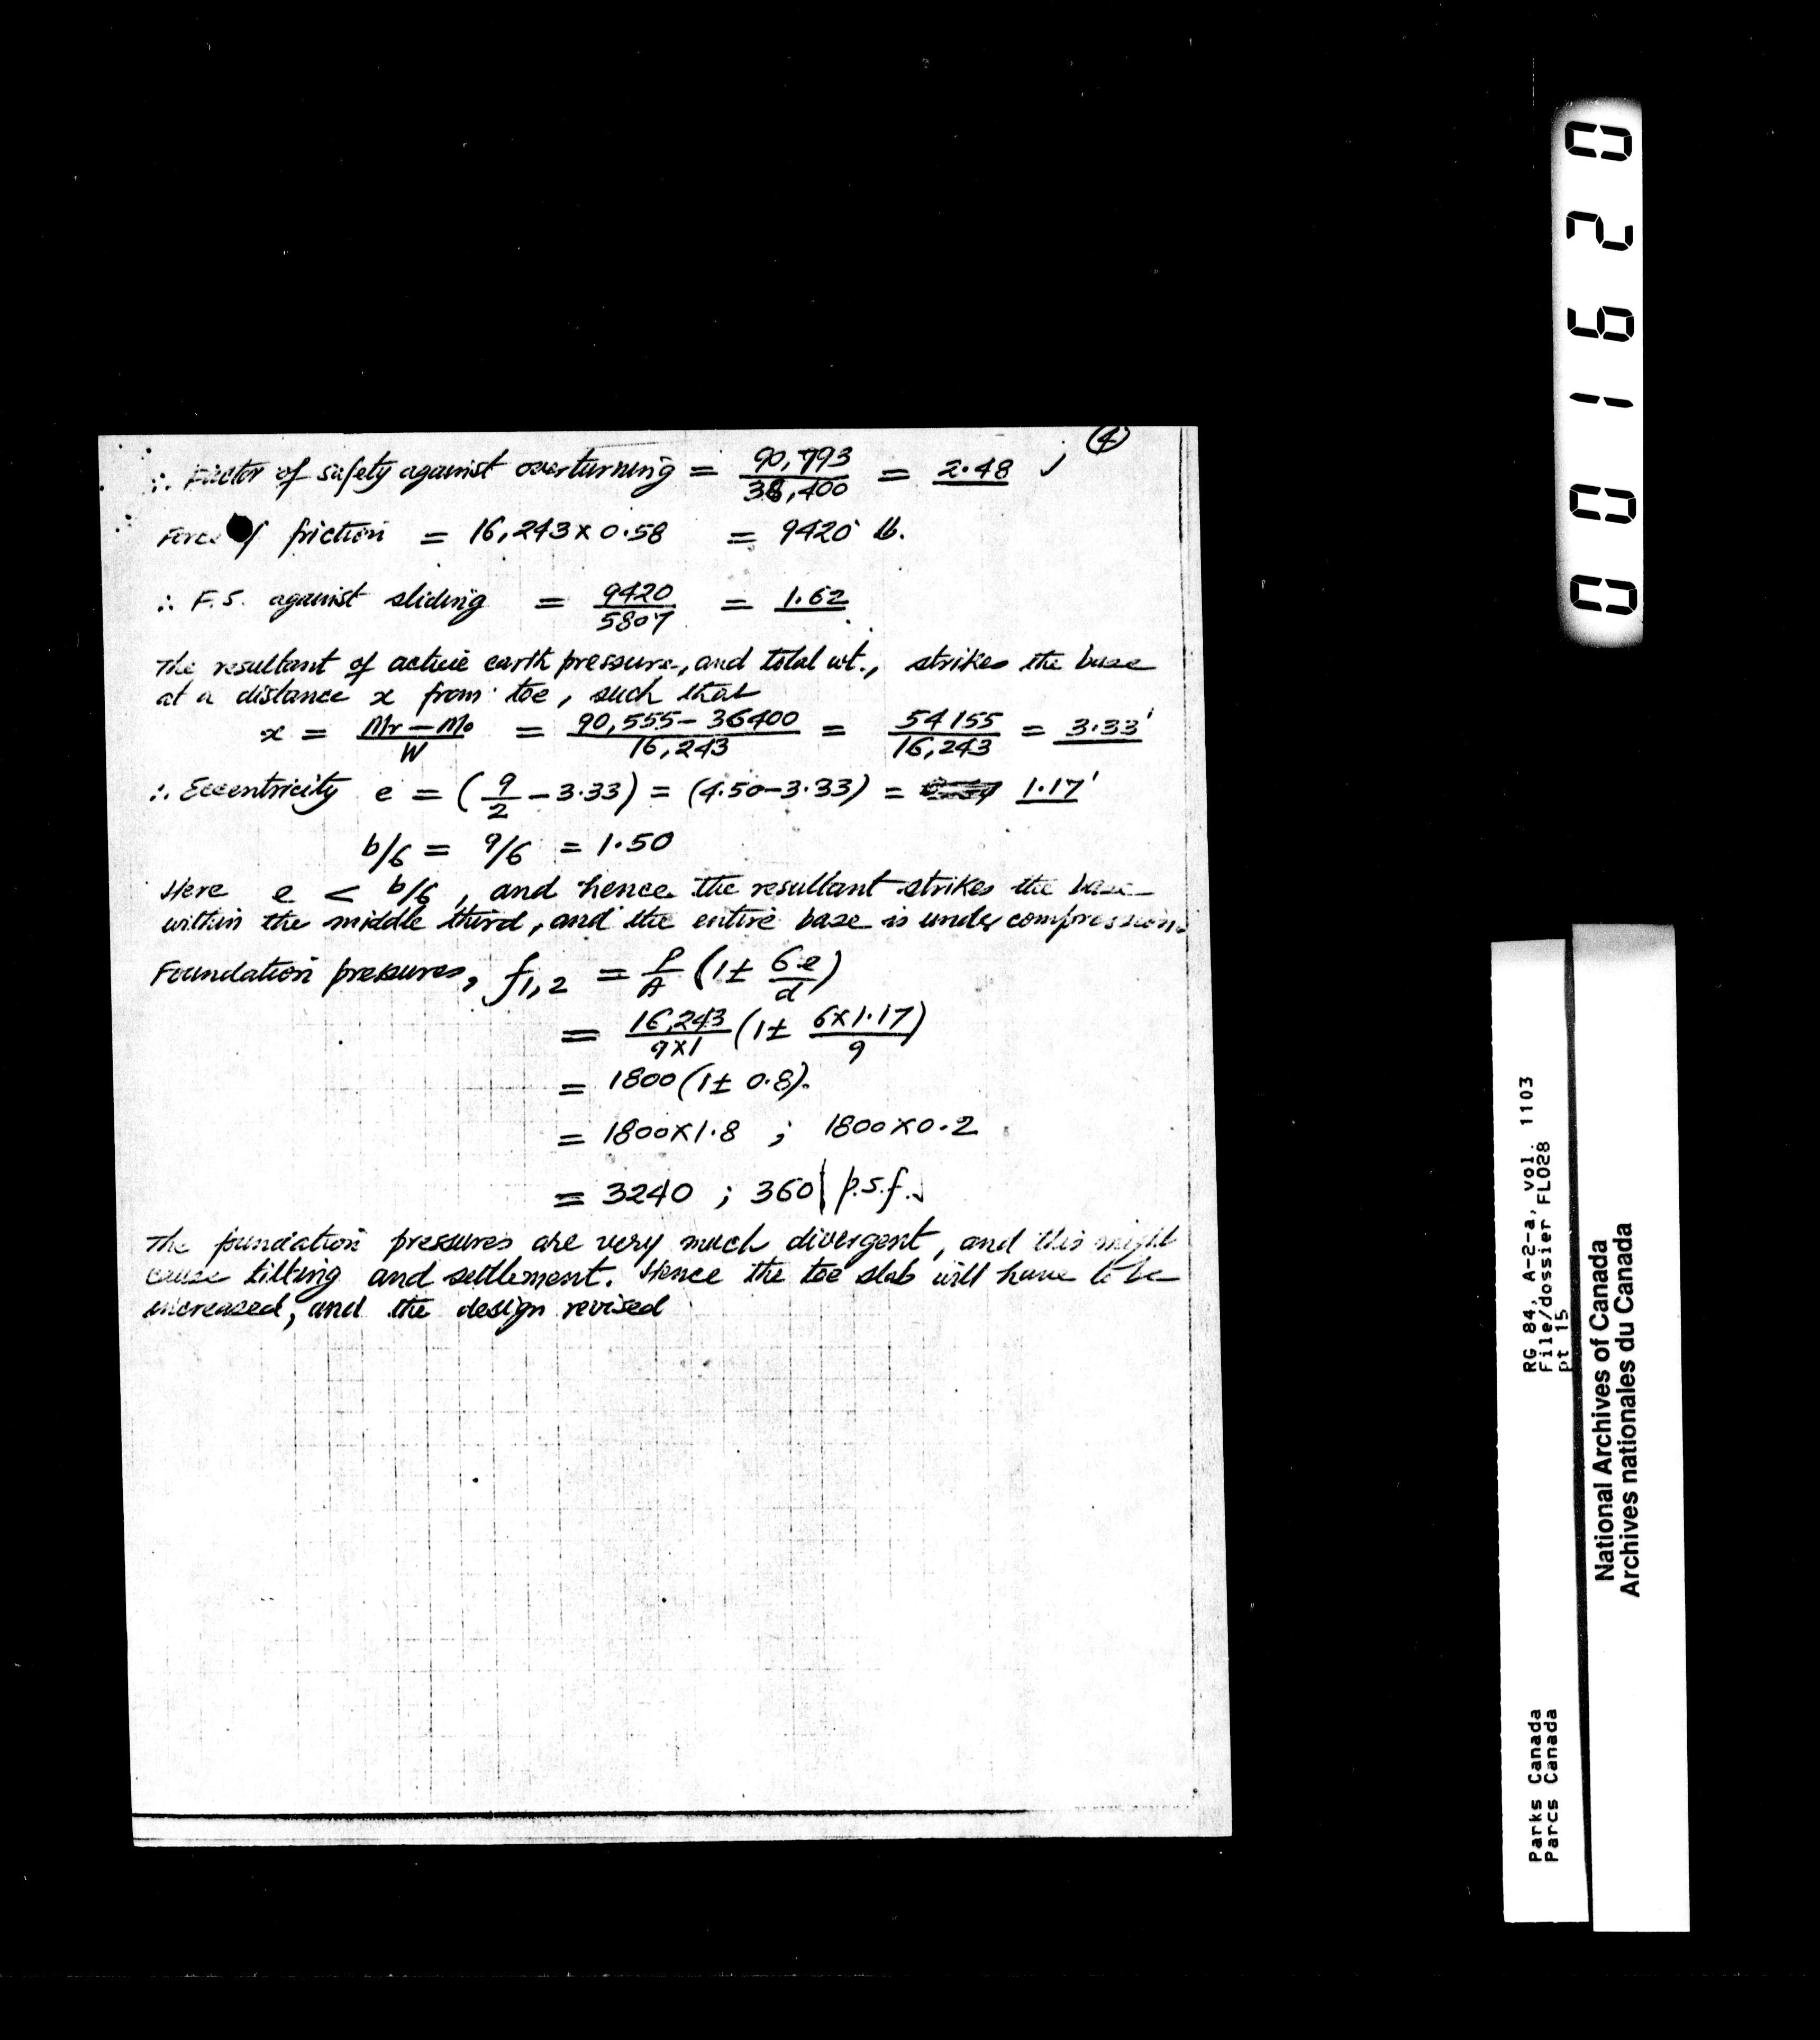 (4)
∴ Factor of safety against overturning = 90,793 / 36,400 = 2.48 ;
Force of friction = 16,243 x 0.58 = 9420 lb.
∴ F.S. against sliding = 9420 / 5807 = 1.62
The resultant of active earth pressure, and total wt., strikes the base
at a distance x from toe, such that
x = Mr - Mo / W = 90,555 - 36400 / 16,243 = 54155 / 16,243 = 3.33'
∴ Eccentricity e = (9/2 - 3.33) = (4.50 - 3.33) = 1.17'
b/6 = 9/6 = 1.50
Here e < b/6, and hence the resultant strikes the base
within the middle third, and the entire base is under compression.
Foundation pressures, f1,2 = P/A (1 ± 6e/d)
= 16,243 / 9x1 (1 ± 6x1.17 / 9)
= 1800 (1 ± 0.8).
= 1800 x 1.8 ; 1800 x 0.2
= 3240 ; 360 | p.s.f.
The foundation pressures are very much divergent, and this might
cause tilting and settlement. Hence the toe slab will have to be
increased, and the design revised
001620
RG 84, A-2-a, vol. 1103
File/dossier FLO28
pt 15
Parks Canada
Parcs Canada
National Archives of Canada
Archives nationales du Canada